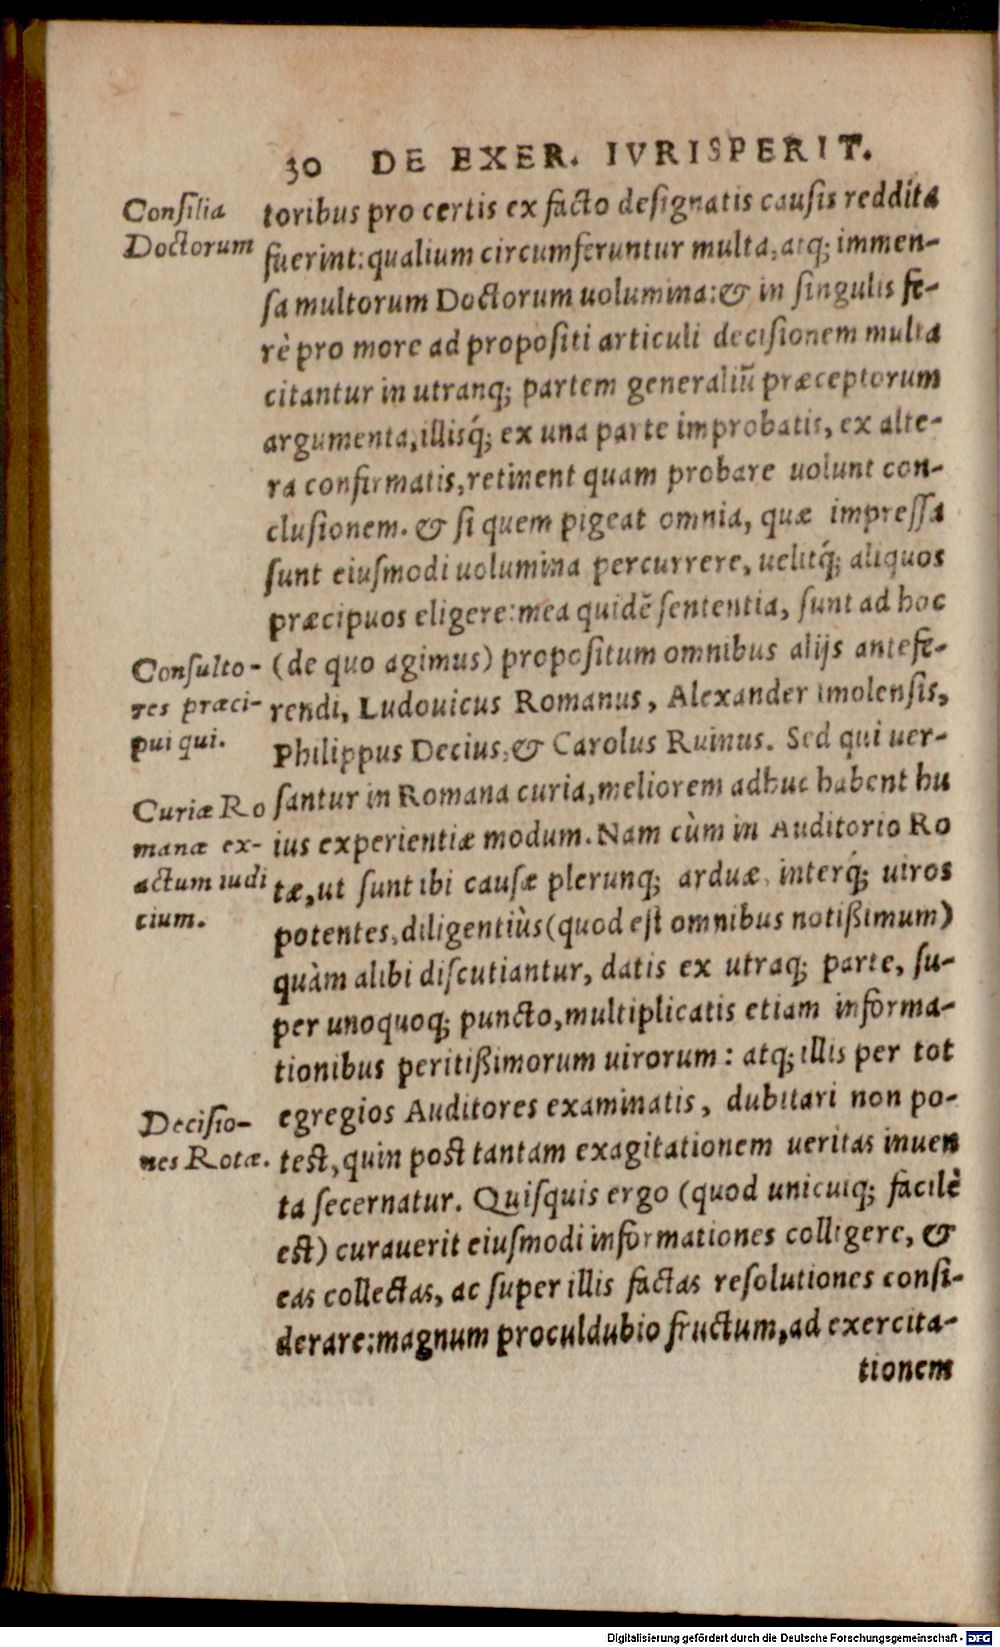 30 DE EXER. IVRISPERIT.
Consilia
Doctorum
toribus pro certis ex facto designatis causis reddita
fuerint: qualium circumferuntur multa, atq; immen-
sa multorum Doctorum uolumina: & in singulis fe-
rè pro more ad propositi articuli decisionem multa
citantur in utranq; partem generaliũ præceptorum
argumenta, illisq́; ex una parte improbatis, ex alte-
ra confirmatis, retinent quam probare uolunt con-
clusionem. & si quem pigeat omnia, quæ impressa
sunt eiusmodi uolumina percurrere, uelitq́; aliquos
præcipuos eligere: mea quidẽ sententia, sunt ad hoc
Consulto-
res præci-
pui qui.
(de quo agimus) propositum omnibus alijs antefe-
rendi, Ludouicus Romanus, Alexander Imolensis,
Philippus Decius, & Carolus Ruinus. Sed qui uer-
Curiæ Ro
manæ ex-
actum iudi
cium.
santur in Romana curia, meliorem adhuc habent hu
ius experientiæ modum. Nam cùm in Auditorio Ro
tæ, ut sunt ibi causæ plerunq; arduæ, interq́; uiros
potentes, diligentiùs (quod est omnibus notißimum)
quàm alibi discutiantur, datis ex utraq; parte, su-
per unoquoq; puncto, multiplicatis etiam informa-
tionibus peritißimorum uirorum: atq; illis per tot
Decisio-
nes Rotæ.
egregios Auditores examinatis, dubitari non po-
test, quin post tantam exagitationem ueritas inuen
ta secernatur. Quisquis ergo (quod unicuiq; facilè
est) curauerit eiusmodi informationes colligere, &
eas collectas, ac super illis factas resolutiones consi-
derare: magnum proculdubio fructum, ad exercita-
tionem
Digitalisierung gefördert durch die Deutsche Forschungsgemeinschaft - DFG